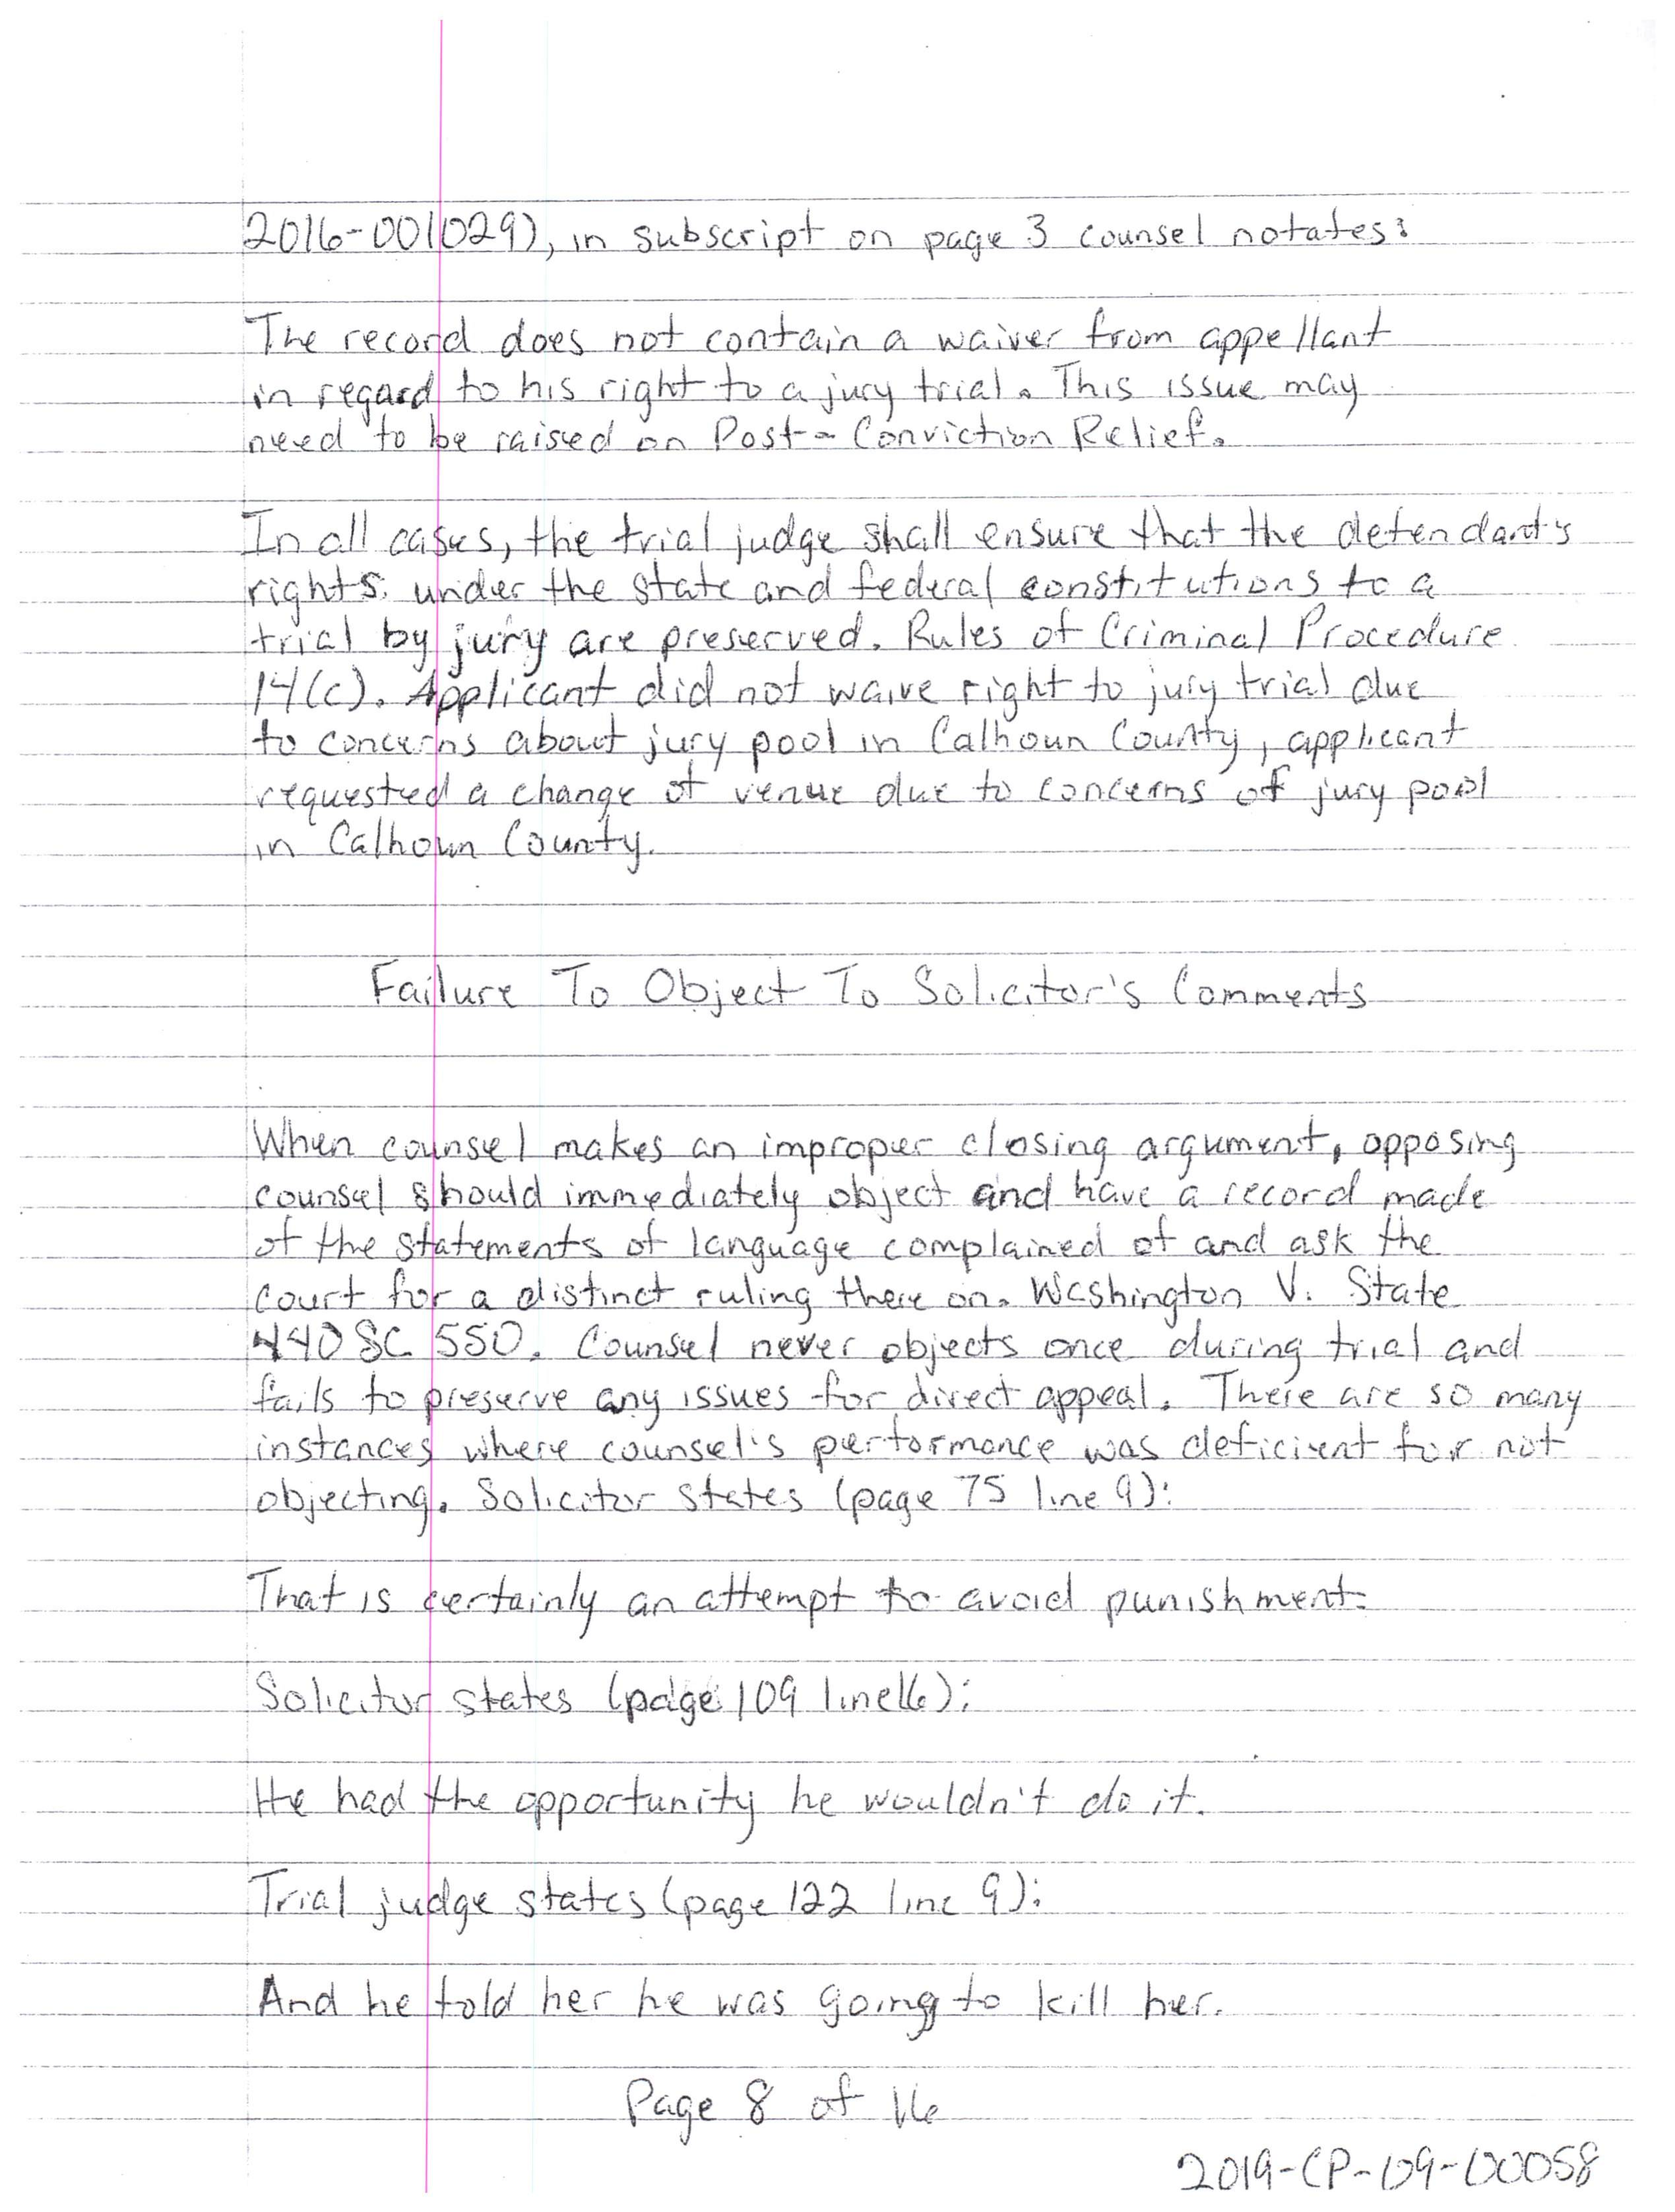 2016-001029), in subscript on page 3 counsel notates:
The record does not contain a waiver from appellant
in regard to his right to a jury trial. This issue may
need to be raised on Post-Conviction Relief.
In all cases, the trial judge shall ensure that the defendant's
rights under the state and federal constitutions to a
trial by jury are preserved. Rules of Criminal Procedure
14(c). Applicant did not waive right to jury trial due
to concerns about jury pool in Calhoun County, applicant
requested a change of venue due to concerns of jury pool
in Calhoun County.
Failure To Object To Solicitor's Comments
When counsel makes an improper closing argument, opposing
counsel should immediately object and have a record made
of the statements of language complained of and ask the
court for a distinct ruling there on. Washington V. State
440 SC 550. Counsel never objects once during trial and
fails to preserve any issues for direct appeal. There are so many
instances where counsel's performance was deficient for not
objecting. Solicitor states (page 75 line 9):
That is certainly an attempt to avoid punishment.
Solicitor states (page 109 line 16):
He had the opportunity he wouldn't do it.
Trial judge states (page 122 line 9):
And he told her he was going to kill her.
Page 8 of 16
2019-CP-09-00058